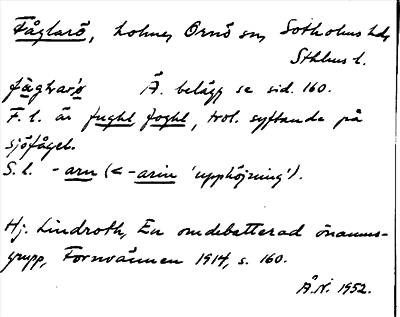 Fåglarö, Lohne, Ornö sn, Sotholms hd,
Sthlms l.
fåglarö Ä. belägg se sid. 160.
F. l. är fughl foghl, trol. syftande på
sjöfågel.
S. l. -arn (< -arin 'upphöjning').
Hj. Lindroth, En omdebatterad önamns-
grupp, Fornvännen 1914, s. 160.
Å.N. 1952.